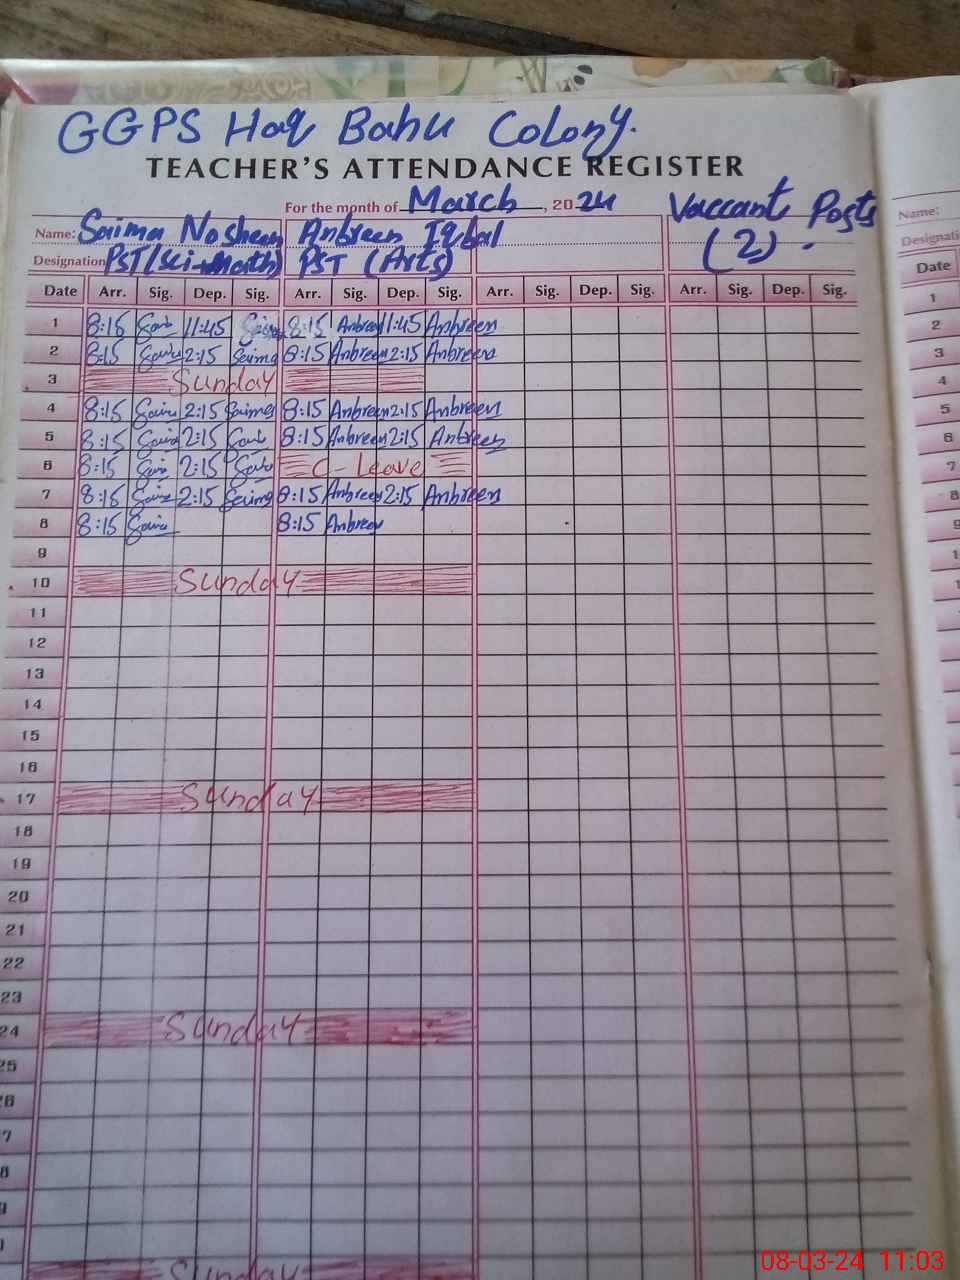 GGPS Haq Bahu Colony.
TEACHER'S ATTENDANCE REGISTER
For the month of March, 2024 Vaccant Posts
Name: Saima Nosheen Anbreen Iqbal (2) Name:
Designation PST (Sci-Math) PST (Arts) Designati
Date Arr. Sig. Dep. Sig. Arr. Sig. Dep. Sig. Arr. Sig. Dep. Sig. Arr. Sig. Dep. Sig. Date
1 8:15 11:45 8:15 Anbreen 11:45 Anbreen 1
2 8:15 2:15 Saima 8:15 Anbreen 2:15 Anbreen 2
3 Sunday 3
4 8:15 2:15 Saima 8:15 Anbreen 2:15 Anbreen 4
5 8:15 2:15 8:15 Anbreen 2:15 Anbreen 5
6 8:15 2:15 C-Leave 6
7 8:15 2:15 Saima 8:15 Anbreen 2:15 Anbreen 7
8 8:15 8:15 Anbreen 8
9 9
10 Sunday
11
12
13
14
15
16
17 Sunday
18
19
20
21
22
23
24 Sunday
25
26
7
8
Sunday
08-03-24 11:03